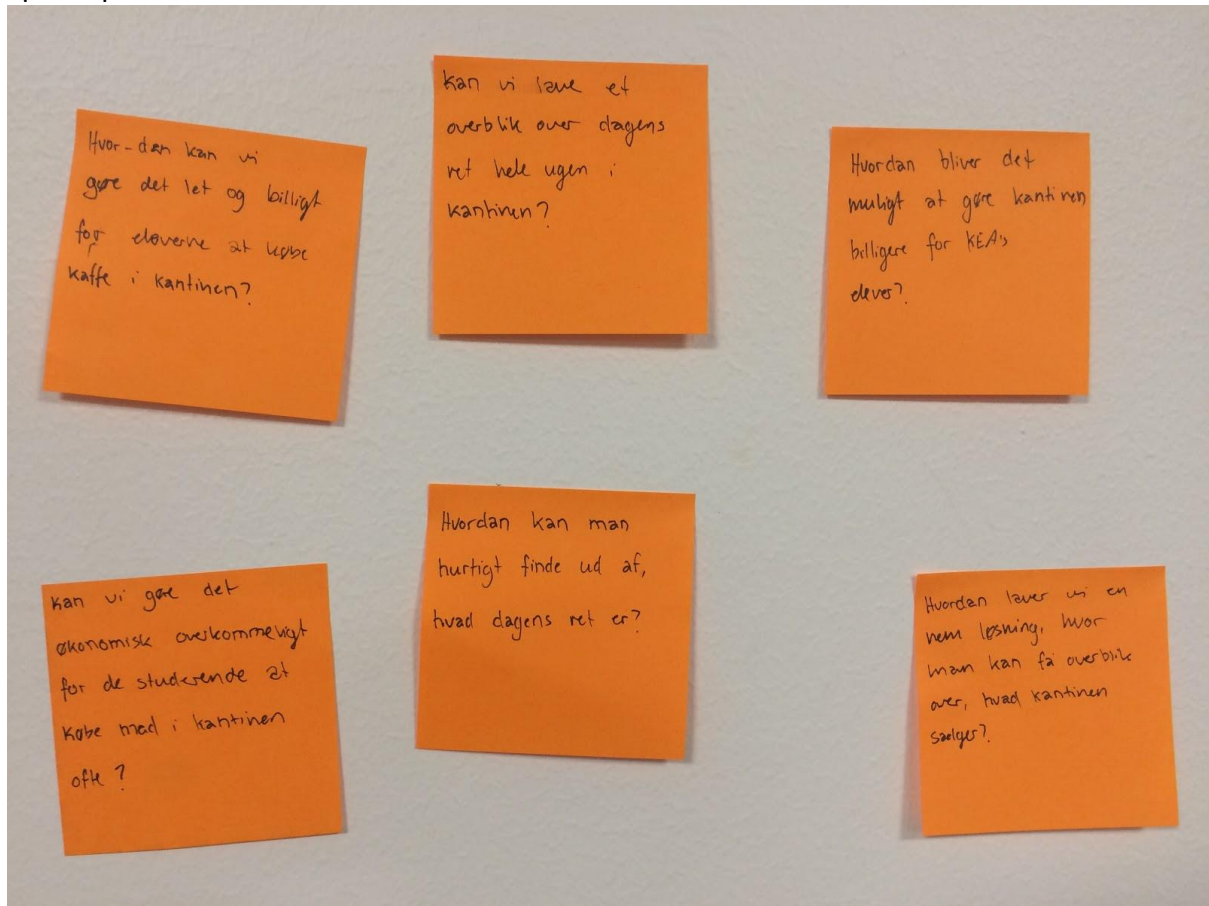 Hvor-dan kan vi
gøre det let og billigt
for eleverne at købe
kaffe i kantinen?
Kan vi lave et
overblik over dagens
ret hele ugen i
kantinen?
Hvordan bliver det
muligt at gøre kantinen
billigere for KEA's
elever?
Kan vi gøre det
økonomisk overkommeligt
for de studerende at
købe mad i kantinen
ofte?
Hvordan kan man
hurtigt finde ud af,
hvad dagens ret er?
Hvordan laver vi en
nem løsning, hvor
man kan få overblik
over, hvad kantinen
sælger?